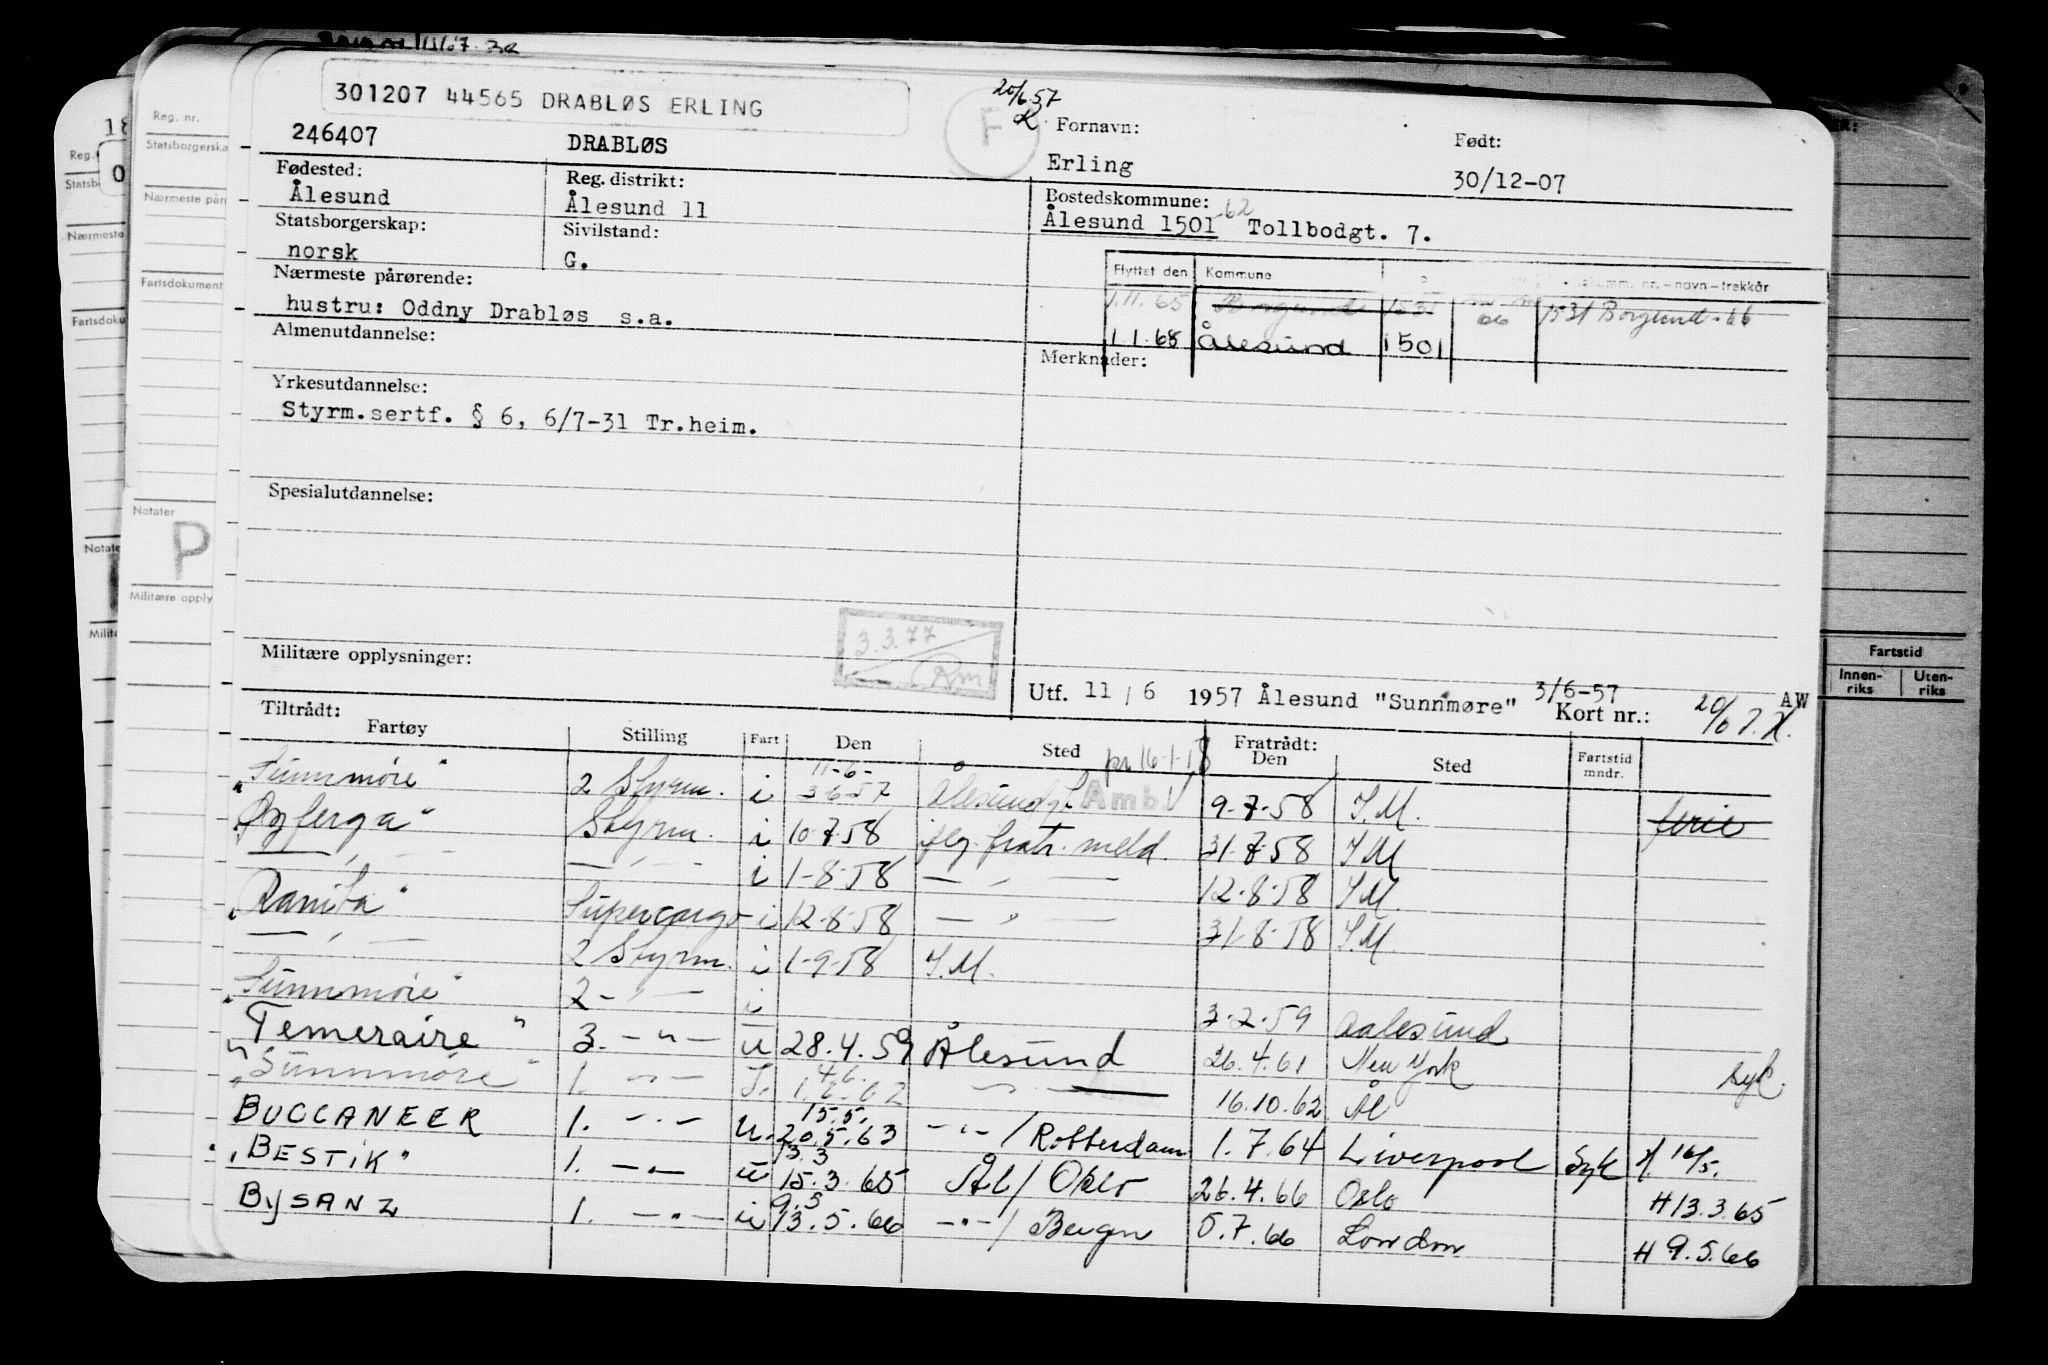 301207 44565 DRABLØS ERLING
246407 DRABLØS
F
20/6 57
Fornavn: Født:
Erling 30/12-07
Fødested: Reg. distrikt: Bostedskommune:
Ålesund Ålesund 11 Ålesund 1501 -62 Tollbodgt. 7.
Statsborgerskap: Sivilstand:
norsk G.
Flyttet den Kommune nr.-navn-trekkår
1.11.65 Borgund 1531 66 1531 Borgund-66
1.1.68 Ålesund 1501
Nærmeste pårørende:
hustru: Oddny Drabløs s.a.
Almenutdannelse: Merknader:
Yrkesutdannelse:
Styrm.sertf. § 6, 6/7-31 Tr.heim.
Spesialutdannelse:
3.3.77
Militære opplysninger:
Utf. 11/6 1957 Ålesund "Sunnmøre" 3/6-57 Kort nr.: 20/6 AW
Tiltrådt: Fratrådt:
Fartøy Stilling Fart Den Sted Den Sted Fartstid mndr.
pr 16-1-58
"Sunnmøre" 2 Styrm. i 11-6- 3-6-57 Ålesund Amb. 9-7-58 I.M. ferie
Øyferga" Styrm. i 10-7-58 iflg. fratr. meld. 31-7-58 I.M
— " — — " — i 1-8-58 — " — 12-8-58 I.M.
"Ranita" Supercargo i 12-8-58 — " — 31-8-58 I.M.
— " — 2 Styrm. i 1-9-58 I.M.
"Sunnmøre" 2 - " — i 3-2-59 Aalesund
"Temeraire" 3. — " — u 28.4.59 Ålesund 26.4.61 New York syk.
"Sunnmøre" 1. — " — 4.6. 1.6.62 — " — 16.10.62 Ål
BUCCANEER 1. — " — u. 15.5. 20.5.63 — " — / Rotterdam 1.7.64 Liverpool Syk 16/5.
"BESTIK" 1. — " — u 13.3 15.3.65 Ål / Oslo 26.4.66 Oslo H 13.3.65
BYSANZ 1. — " — u 9.5 13.5.66 — " — / Bergen 5.7.66 London H 9.5.66
Reg. nr.
Notater
P
Fartstid
Innen-riks Uten-riks